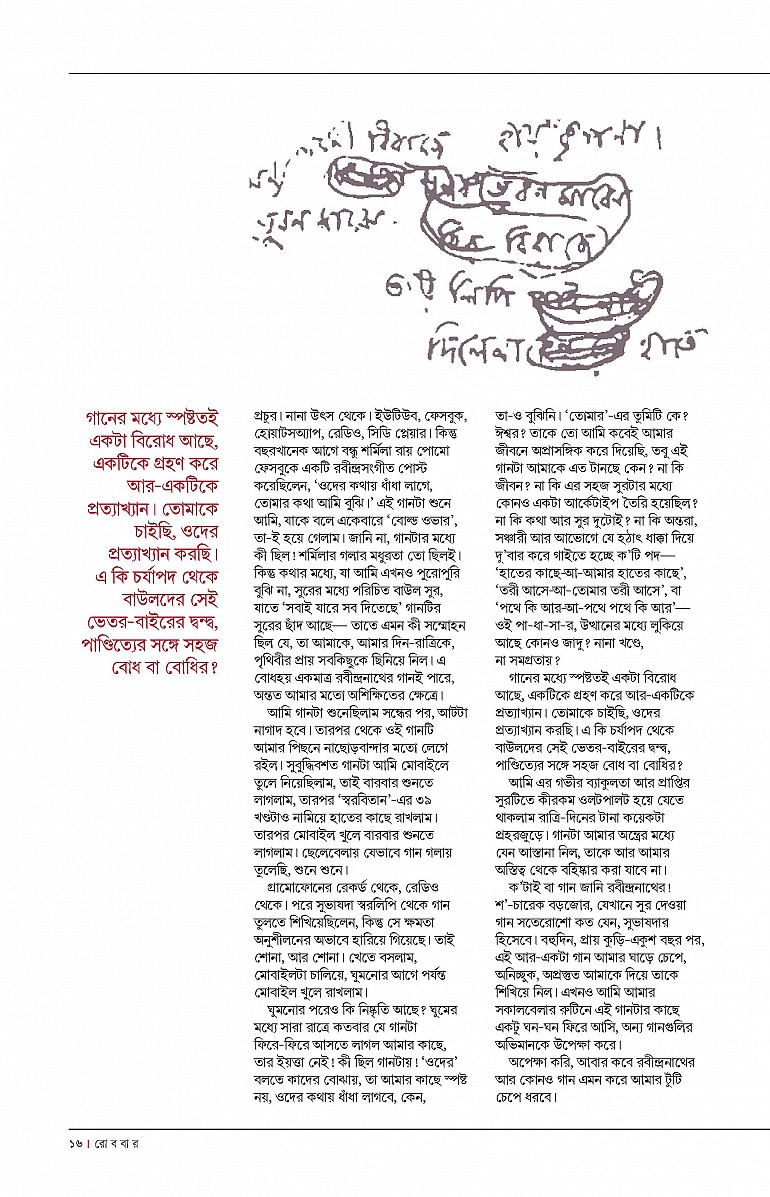 হায়
লিপি
গানের মধ্যে স্পষ্টতই
একটা বিরোধ আছে,
একটিকে গ্রহণ করে
আর-একটিকে
প্রত্যাখ্যান। তোমাকে
চাইছি, ওদের
প্রত্যাখ্যান করছি।
এ কি চর্যাপদ থেকে
বাউলদের সেই
ভেতর-বাইরের দ্বন্দ্ব,
পাণ্ডিত্যের সঙ্গে সহজ
বোধ বা বোধির?
প্রচুর। নানা উৎস থেকে। ইউটিউব, ফেসবুক,
হোয়াটসঅ্যাপ, রেডিও, সিডি প্লেয়ার। কিন্তু
বছরখানেক আগে বন্ধু শর্মিলা রায় পোমো
ফেসবুকে একটি রবীন্দ্রসংগীত পোস্ট
করেছিলেন, ‘ওদের কথায় ধাঁধা লাগে,
তোমার কথা আমি বুঝি।’ এই গানটা শুনে
আমি, যাকে বলে একেবারে ‘বোল্ড ওভার’,
তা-ই হয়ে গেলাম। জানি না, গানটার মধ্যে
কী ছিল! শর্মিলার গলার মধুরতা তো ছিলই।
কিন্তু কথার মধ্যে, যা আমি এখনও পুরোপুরি
বুঝি না, সুরের মধ্যে পরিচিত বাউল সুর,
যাতে ‘সবাই যারে সব দিতেছে’ গানটির
সুরের ছাঁদ আছে— তাতে এমন কী সম্মোহন
ছিল যে, তা আমাকে, আমার দিন-রাত্রিকে,
পৃথিবীর প্রায় সবকিছুকে ছিনিয়ে নিল। এ
বোধহয় একমাত্র রবীন্দ্রনাথের গানই পারে,
অন্তত আমার মতো অশিক্ষিতের ক্ষেত্রে।
আমি গানটা শুনেছিলাম সন্ধের পর, আটটা
নাগাদ হবে। তারপর থেকে ওই গানটি
আমার পিছনে নাছোড়বান্দার মতো লেগে
রইল। সুবুদ্ধিবশত গানটা আমি মোবাইলে
তুলে নিয়েছিলাম, তাই বারবার শুনতে
লাগলাম, তারপর ‘স্বরবিতান’-এর ৩৯
খণ্ডটাও নামিয়ে হাতের কাছে রাখলাম।
তারপর মোবাইল খুলে বারবার শুনতে
লাগলাম। ছেলেবেলায় যেভাবে গান গলায়
তুলেছি, শুনে শুনে।
গ্রামোফোনের রেকর্ড থেকে, রেডিও
থেকে। পরে সুভাষদা স্বরলিপি থেকে গান
তুলতে শিখিয়েছিলেন, কিন্তু সে ক্ষমতা
অনুশীলনের অভাবে হারিয়ে গিয়েছে। তাই
শোনা, আর শোনা। খেতে বসলাম,
মোবাইলটা চালিয়ে, ঘুমনোর আগে পর্যন্ত
মোবাইল খুলে রাখলাম।
ঘুমনোর পরেও কি নিষ্কৃতি আছে? ঘুমের
মধ্যে সারা রাত্রে কতবার যে গানটা
ফিরে-ফিরে আসতে লাগল আমার কাছে,
তার ইয়ত্তা নেই! কী ছিল গানটায়! ‘ওদের’
বলতে কাদের বোঝায়, তা আমার কাছে স্পষ্ট
নয়, ওদের কথায় ধাঁধা লাগবে, কেন,
তা-ও বুঝিনি। ‘তোমার’-এর তুমিটি কে?
ঈশ্বর? তাকে তো আমি কবেই আমার
জীবনে অপ্রাসঙ্গিক করে দিয়েছি, তবু এই
গানটা আমাকে এত টানছে কেন? না কি
জীবন? না কি এর সহজ সুরটার মধ্যে
কোনও একটা আর্কেটাইপ তৈরি হয়েছিল?
না কি কথা আর সুর দুটোই? না কি অন্তরা,
সঞ্চারী আর আভোগে যে হঠাৎ ধাক্কা দিয়ে
দু’বার করে গাইতে হচ্ছে ক’টি পদ—
‘হাতের কাছে-আ-আমার হাতের কাছে’,
‘তরী আসে-আ-তোমার তরী আসে’, বা
‘পথে কি আর-আ-পথে পথে কি আর’—
ওই পা-ধা-সা-র, উত্থানের মধ্যে লুকিয়ে
আছে কোনও জাদু? নানা খণ্ডে,
না সমগ্রতায়?
গানের মধ্যে স্পষ্টতই একটা বিরোধ
আছে, একটিকে গ্রহণ করে আর-একটিকে
প্রত্যাখ্যান। তোমাকে চাইছি, ওদের
প্রত্যাখ্যান করছি। এ কি চর্যাপদ থেকে
বাউলদের সেই ভেতর-বাইরের দ্বন্দ্ব,
পাণ্ডিত্যের সঙ্গে সহজ বোধ বা বোধির?
আমি এর গভীর ব্যাকুলতা আর প্রাপ্তির
সুরটিতে কীরকম ওলটপালট হয়ে যেতে
থাকলাম রাত্রি-দিনের টানা কয়েকটা
প্রহরজুড়ে। গানটা আমার অন্ত্রের মধ্যে
যেন আস্তানা নিল, তাকে আর আমার
অস্তিত্ব থেকে বহিষ্কার করা যাবে না।
ক’টাই বা গান জানি রবীন্দ্রনাথের!
শ’-চারেক বড়জোর, যেখানে সুর দেওয়া
গান সতেরোশো কত যেন, সুভাষদার
হিসেবে। বহুদিন, প্রায় কুড়ি-একুশ বছর পর,
এই আর-একটা গান আমার ঘাড়ে চেপে,
অনিচ্ছুক, অপ্রস্তুত আমাকে দিয়ে তাকে
শিখিয়ে নিল। এখনও আমি আমার
সকালবেলার রুটিনে এই গানটার কাছে
একটু ঘন-ঘন ফিরে আসি, অন্য গানগুলির
অভিমানকে উপেক্ষা করে।
অপেক্ষা করি, আবার কবে রবীন্দ্রনাথের
আর কোনও গান এমন করে আমার টুঁটি
চেপে ধরবে।
১৬ । রোববার